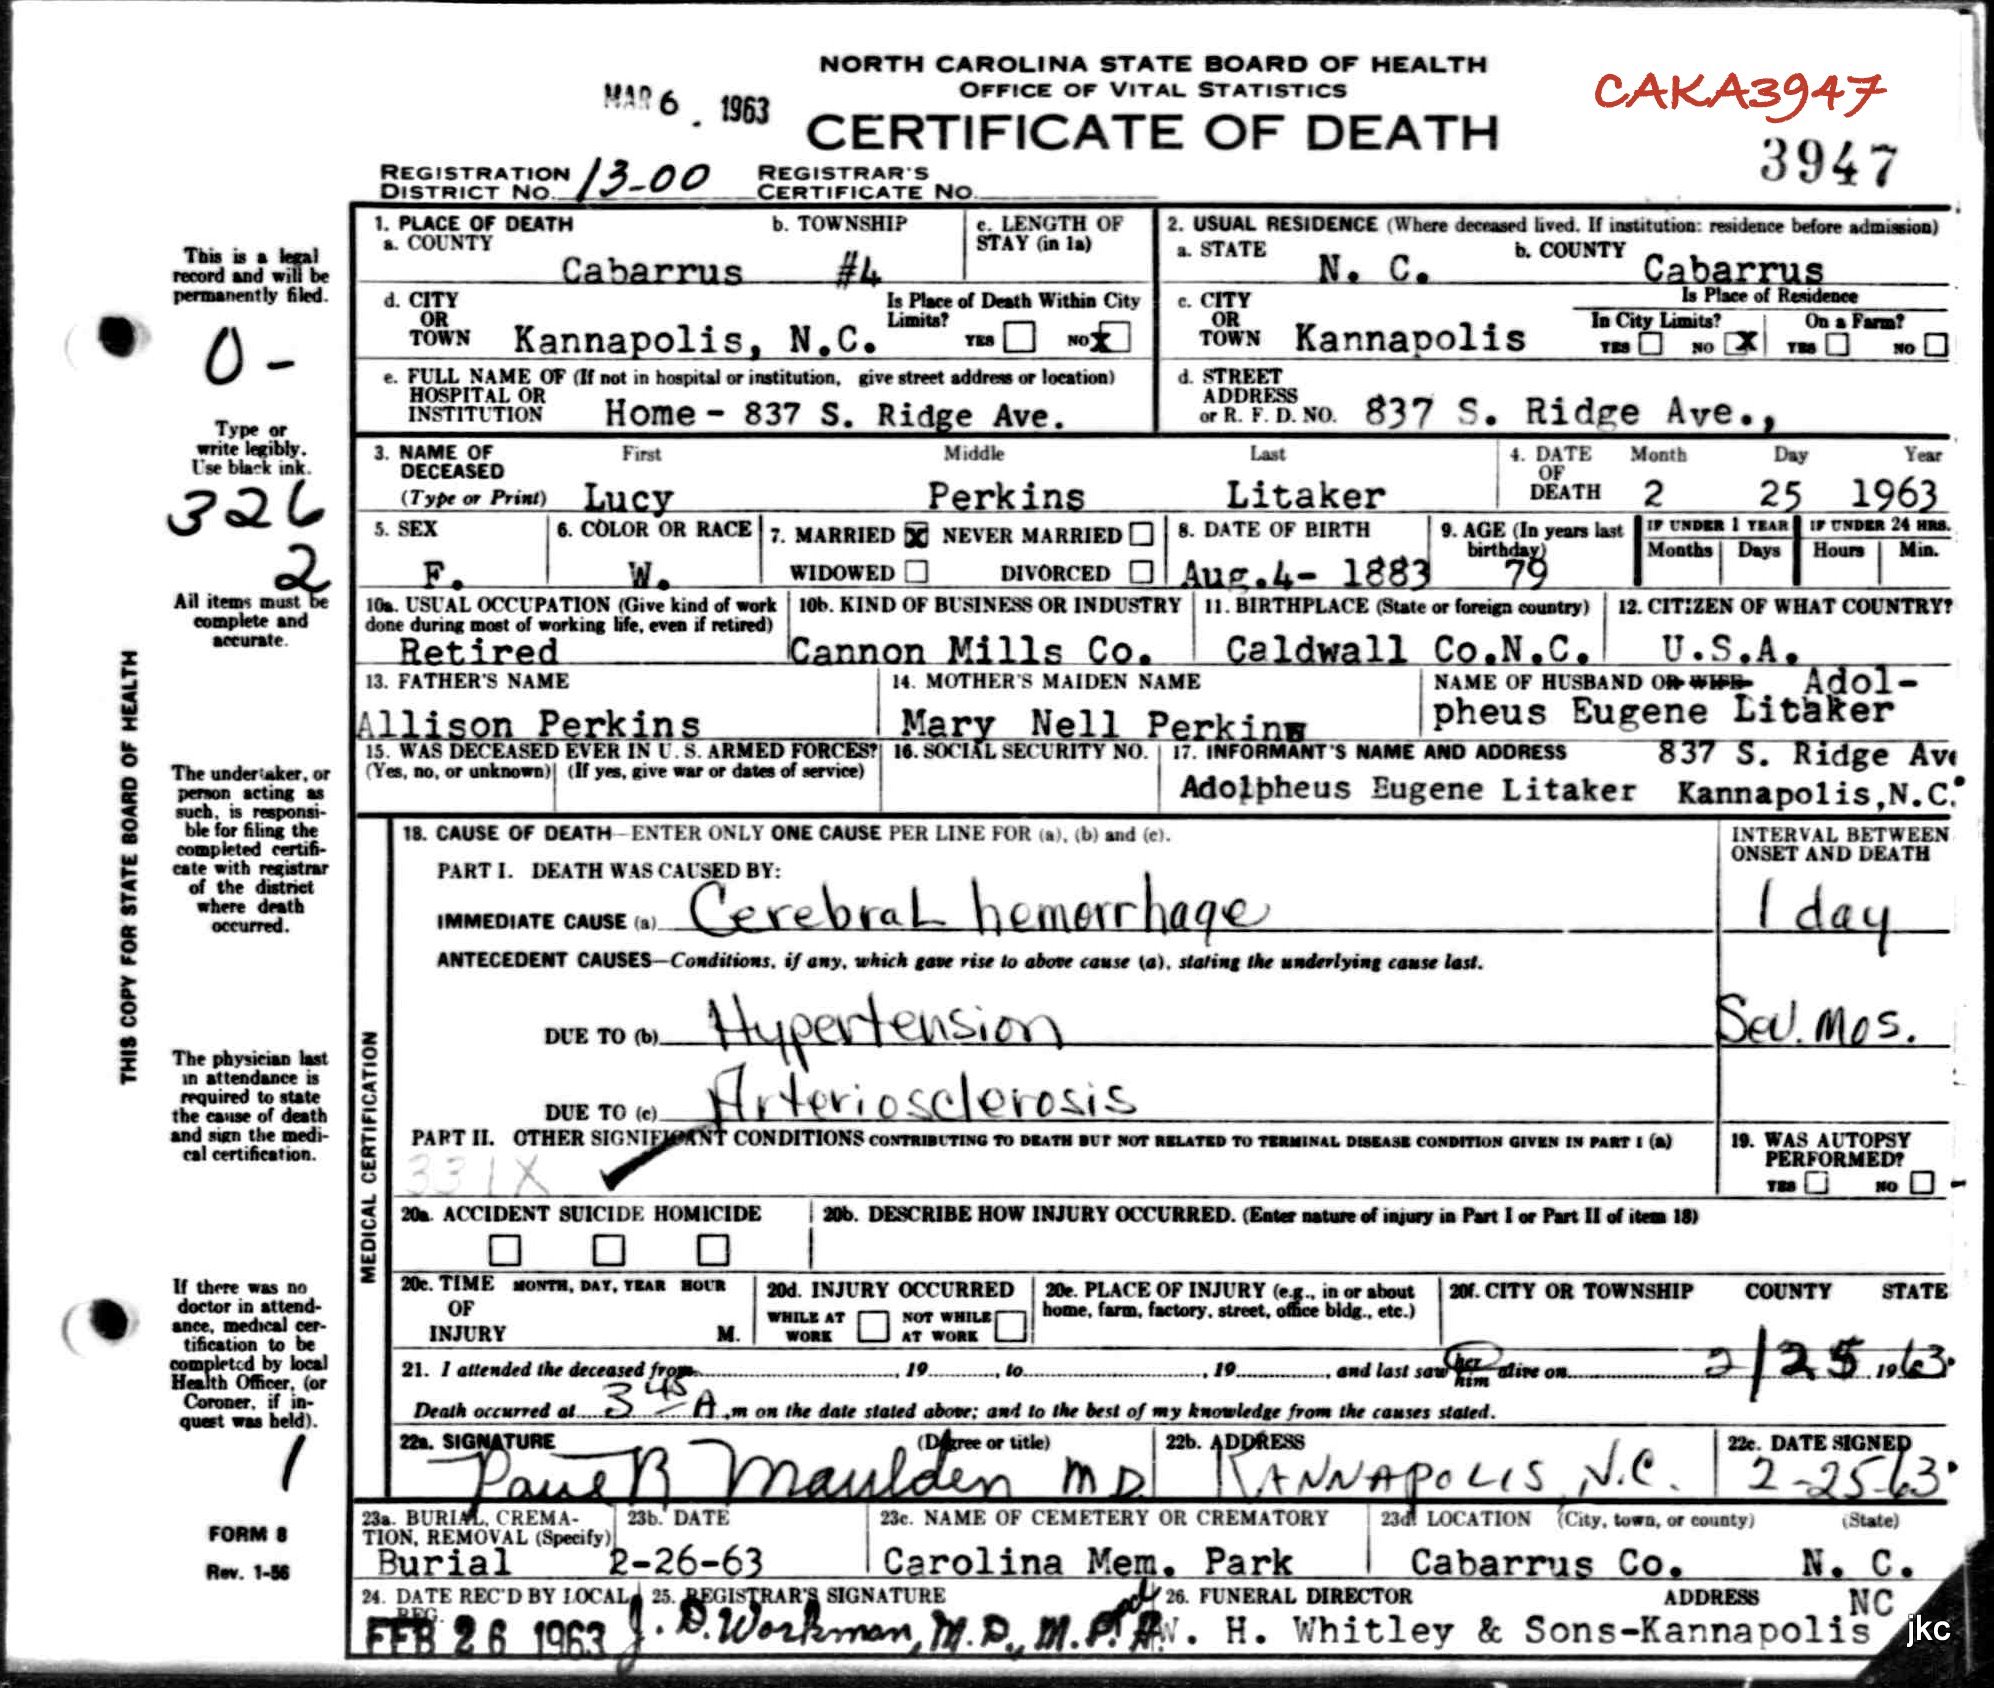 NORTH CAROLINA STATE BOARD OF HEALTH
OFFICE OF VITAL STATISTICS
MAR 6 . 1963
CAKA3947
CERTIFICATE OF DEATH
3947
REGISTRATION DISTRICT NO. 13-00 REGISTRAR'S CERTIFICATE NO.
This is a legal record and will be permanently filed.
0 -
Type or write legibly. Use black ink.
326
2
All items must be complete and accurate.
THIS COPY FOR STATE BOARD OF HEALTH
The undertaker, or person acting as such, is responsible for filing the completed certificate with registrar of the district where death occurred.
The physician last in attendance is required to state the cause of death and sign the medical certification.
If there was no doctor in attendance, medical certification to be completed by local Health Officer, (or Coroner, if inquest was held).
1
FORM 8
Rev. 1-56
1. PLACE OF DEATH
a. COUNTY Cabarrus
b. TOWNSHIP #4
c. LENGTH OF STAY (in 1a)
2. USUAL RESIDENCE (Where deceased lived. If institution: residence before admission)
a. STATE N. C.
b. COUNTY Cabarrus
d. CITY OR TOWN Kannapolis, N.C.
Is Place of Death Within City Limits? YES NO X
c. CITY OR TOWN Kannapolis
Is Place of Residence
In City Limits? YES NO X
On a Farm? YES NO
e. FULL NAME OF HOSPITAL OR INSTITUTION (If not in hospital or institution, give street address or location)
Home - 837 S. Ridge Ave.
d. STREET ADDRESS or R. F. D. NO. 837 S. Ridge Ave.,
3. NAME OF DECEASED (Type or Print) First Middle Last
Lucy Perkins Litaker
4. DATE OF DEATH Month Day Year
2 25 1963
5. SEX F.
6. COLOR OR RACE W.
7. MARRIED X NEVER MARRIED
WIDOWED DIVORCED
8. DATE OF BIRTH Aug.4- 1883
9. AGE (In years last birthday) 79
IF UNDER 1 YEAR Months Days
IF UNDER 24 HRS. Hours Min.
10a. USUAL OCCUPATION (Give kind of work done during most of working life, even if retired)
Retired
10b. KIND OF BUSINESS OR INDUSTRY
Cannon Mills Co.
11. BIRTHPLACE (State or foreign country)
Caldwall Co.N.C.
12. CITIZEN OF WHAT COUNTRY?
U.S.A.
13. FATHER'S NAME
Allison Perkins
14. MOTHER'S MAIDEN NAME
Mary Nell Perkins
NAME OF HUSBAND OR WIFE Adol-
pheus Eugene Litaker
15. WAS DECEASED EVER IN U. S. ARMED FORCES?
(Yes, no, or unknown) (If yes, give war or dates of service)
16. SOCIAL SECURITY NO.
17. INFORMANT'S NAME AND ADDRESS 837 S. Ridge Ave
Adolpheus Eugene Litaker Kannapolis,N.C.
MEDICAL CERTIFICATION
18. CAUSE OF DEATH—ENTER ONLY ONE CAUSE PER LINE FOR (a), (b) and (c).
INTERVAL BETWEEN ONSET AND DEATH
PART I. DEATH WAS CAUSED BY:
IMMEDIATE CAUSE (a) Cerebral hemorrhage 1 day
ANTECEDENT CAUSES—Conditions, if any, which gave rise to above cause (a), stating the underlying cause last.
DUE TO (b) Hypertension Sev. mos.
DUE TO (c) Arteriosclerosis
PART II. OTHER SIGNIFICANT CONDITIONS CONTRIBUTING TO DEATH BUT NOT RELATED TO TERMINAL DISEASE CONDITION GIVEN IN PART I (a)
331X
19. WAS AUTOPSY PERFORMED?
YES NO
20a. ACCIDENT SUICIDE HOMICIDE
20b. DESCRIBE HOW INJURY OCCURRED. (Enter nature of injury in Part I or Part II of item 18)
20c. TIME OF INJURY MONTH, DAY, YEAR HOUR M.
20d. INJURY OCCURRED
WHILE AT WORK NOT WHILE AT WORK
20e. PLACE OF INJURY (e.g., in or about home, farm, factory, street, office bldg., etc.)
20f. CITY OR TOWNSHIP COUNTY STATE
21. I attended the deceased from , 19 , to , 19 , and last saw her him alive on 2/25 1963.
Death occurred at 3 45 A .m on the date stated above; and to the best of my knowledge from the causes stated.
22a. SIGNATURE (Degree or title)
Paul R Maulden MD
22b. ADDRESS
KANNAPOLIS N.C.
22c. DATE SIGNED
2-25-63.
23a. BURIAL, CREMATION, REMOVAL (Specify)
Burial
23b. DATE
2-26-63
23c. NAME OF CEMETERY OR CREMATORY
Carolina Mem. Park
23d. LOCATION (City, town, or county) (State)
Cabarrus Co. N. C.
24. DATE REC'D BY LOCAL REG.
FEB 26 1963
25. REGISTRAR'S SIGNATURE
J. D. Workman, M.D., M.P.H.
26. FUNERAL DIRECTOR ADDRESS NC
W. H. Whitley & Sons-Kannapolis
jkc